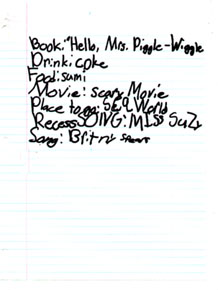 Book: "Hello, Mrs. Piggle-Wiggle
Drink: coke
Food: sumi
Movie: scary Movie
Place to go: SEA World
Recess SOING: MISS SuZy
Song: Britny spears